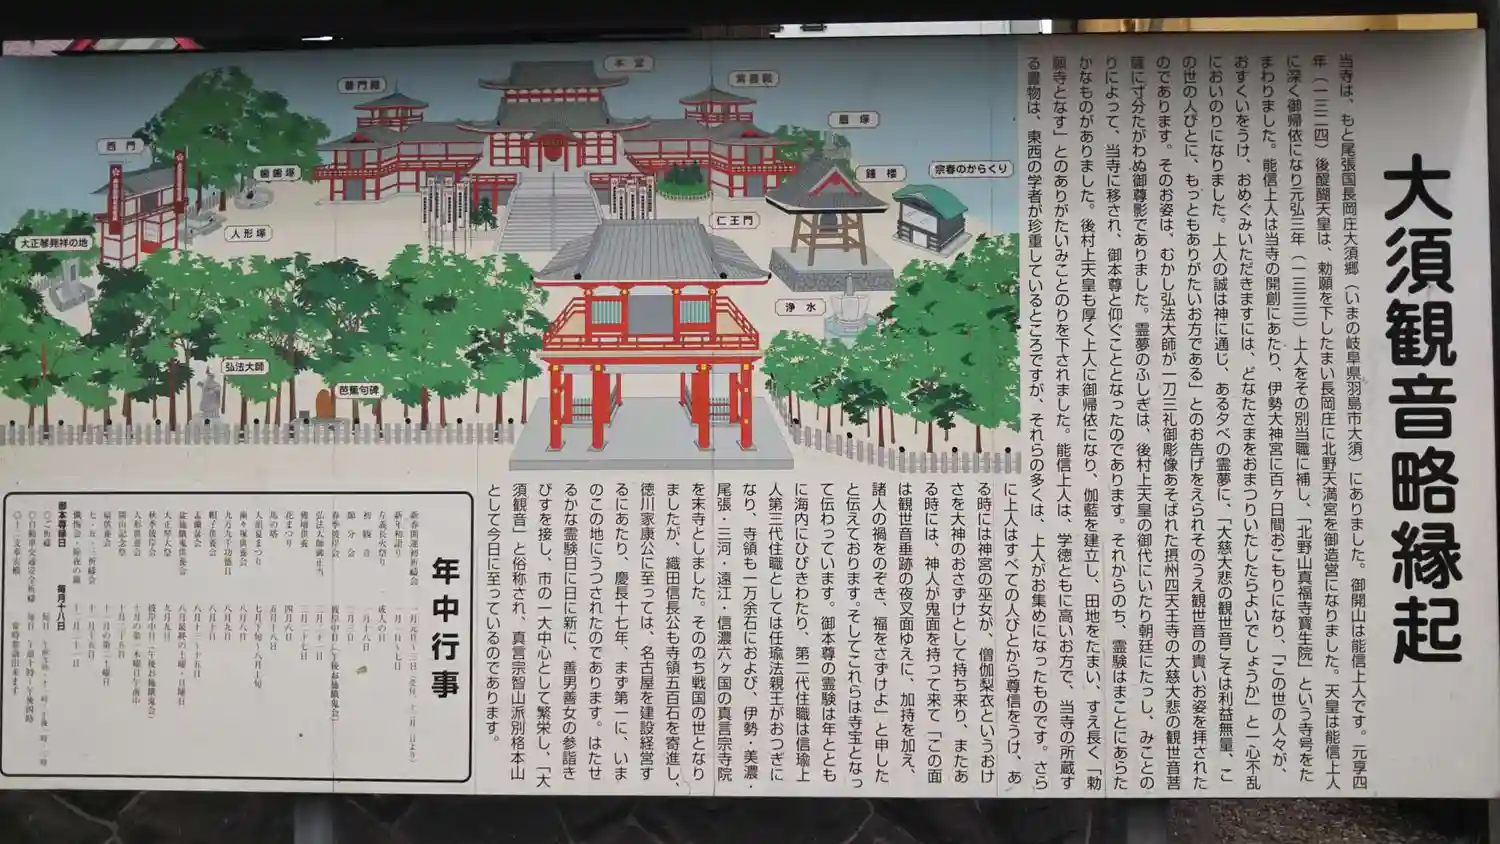 大須観音略縁起
当寺は、もと尾張国長岡庄大須郷（いまの岐阜県羽島市大須）にありました。御開山は能信上人です。元享四
年（一三二四）後醍醐天皇は、勅願を下したまい長岡庄に北野天満宮を御造営になりました。天皇は能信上人
に深く御帰依になり元弘三年（一三三三）上人をその別当職に補し、「北野山真福寺寶生院」という寺号をた
まわりました。能信上人は当寺の開創にあたり、伊勢大神宮に百ヶ日間おこもりになり、「この世の人々が、
おすくいをうけ、おめぐみいただきますには、どなたさまをおまつりいたしたらよいでしょうか」と一心不乱
においのりになりました。上人の誠は神に通じ、ある夕べの霊夢に、「大慈大悲の観世音こそは利益無量、こ
の世の人びとに、もっともありがたいお方である」とのお告げをえられそのうえ観世音の貴いお姿を拝された
のであります。そのお姿は、むかし弘法大師が一刀三礼御彫像あそばれた摂州四天王寺の大慈大悲の観世音菩
薩に寸分たがわぬ御尊影でありました。霊夢のふしぎは、後村上天皇の御代にいたり朝廷にたっし、みことの
りによって、当寺に移され、御本尊と仰ぐこととなったのであります。それからのち、霊験はまことにあらた
かなものがありました。後村上天皇も厚く上人に御帰依になり、伽藍を建立し、田地をたまい、すえ長く「勅
願寺となす」とのありがたいみことのりを下されました。能信上人は、学徳ともに高いお方で、当寺の所蔵す
る書物は、東西の学者が珍重しているところですが、それらの多くは、上人がお集めになったものです。さら
に上人はすべての人びとから尊信をうけ、あ
る時には神宮の巫女が、僧伽梨衣というおけ
さを大神のおさずけとして持ち来り、またあ
る時には、神人が鬼面を持って来て「この面
は観世音垂跡の夜叉面ゆえに、加持を加え、
諸人の禍をのぞき、福をさずけよ」と申した
と伝えております。そしてこれらは寺宝となっ
て伝わっています。御本尊の霊験は年ととも
に海内にひびきわたり、第二代住職は信瑜上
人第三代住職としては任瑜法親王がおつぎに
なり、寺領も一万余石におよび、伊勢・美濃・
尾張・三河・遠江・信濃六ヶ国の真言宗寺院
を末寺としました。そののち戦国の世となり
ましたが、織田信長公も寺領五百石を寄進し、
徳川家康公に至っては、名古屋を建設経営す
るにあたり、慶長十七年、まず第一に、いま
のこの地にうつされたのであります。はたせ
るかな霊験日に日に新に、善男善女の参詣き
びすを接し、市の一大中心として繁栄し、「大
須観音」と俗称され、真言宗智山派別格本山
として今日に至っているのであります。
本堂
普門殿
紫雲殿
西門
歯歯塚
扇塚
鐘楼
宗春のからくり
人形塚
大正琴発祥の地
仁王門
浄水
弘法大師
芭蕉句碑
年中行事
新春開運初祈祷会 一月元日〜三日
新年初詣り 一月一日〜七日
左義長火祭り 成人の日
初観音 一月十八日
節分会 二月三日
弘法大師御正当 三月二十一日
花まつり 四月八日
馬の塔 五月十八日
人形供養会
秋季彼岸会
開山記念祭
七・五・三祈祷会 十一月十五日
御本尊縁日 毎月十八日